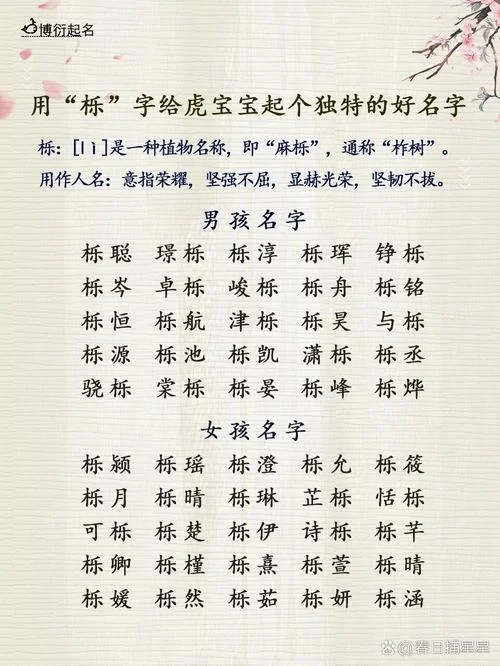 博衍起名
用“栎”字给虎宝宝起个独特的好名字
栎：[lì]是一种植物名称，即“麻栎”，通称“柞树”。
用作人名：意指荣耀，坚强不屈，显赫光荣，坚韧不拔。
男孩名字
栎聪 璟栎 栎淳 栎珲 铮栎
栎岑 卓栎 峻栎 栎舟 栎铭
栎恒 栎航 津栎 栎昊 与栎
栎源 栎池 栎凯 潇栎 栎丞
骁栎 棠栎 栎晏 栎峰 栎烨
女孩名字
栎颍 栎瑶 栎澄 栎允 栎筱
栎月 栎晴 栎琳 芷栎 恬栎
可栎 栎楚 栎伊 诗栎 栎芊
栎卿 栎槿 栎熹 栎萱 栎晴
栎媛 栎然 栎茹 栎妍 栎涵
@春日捕星星